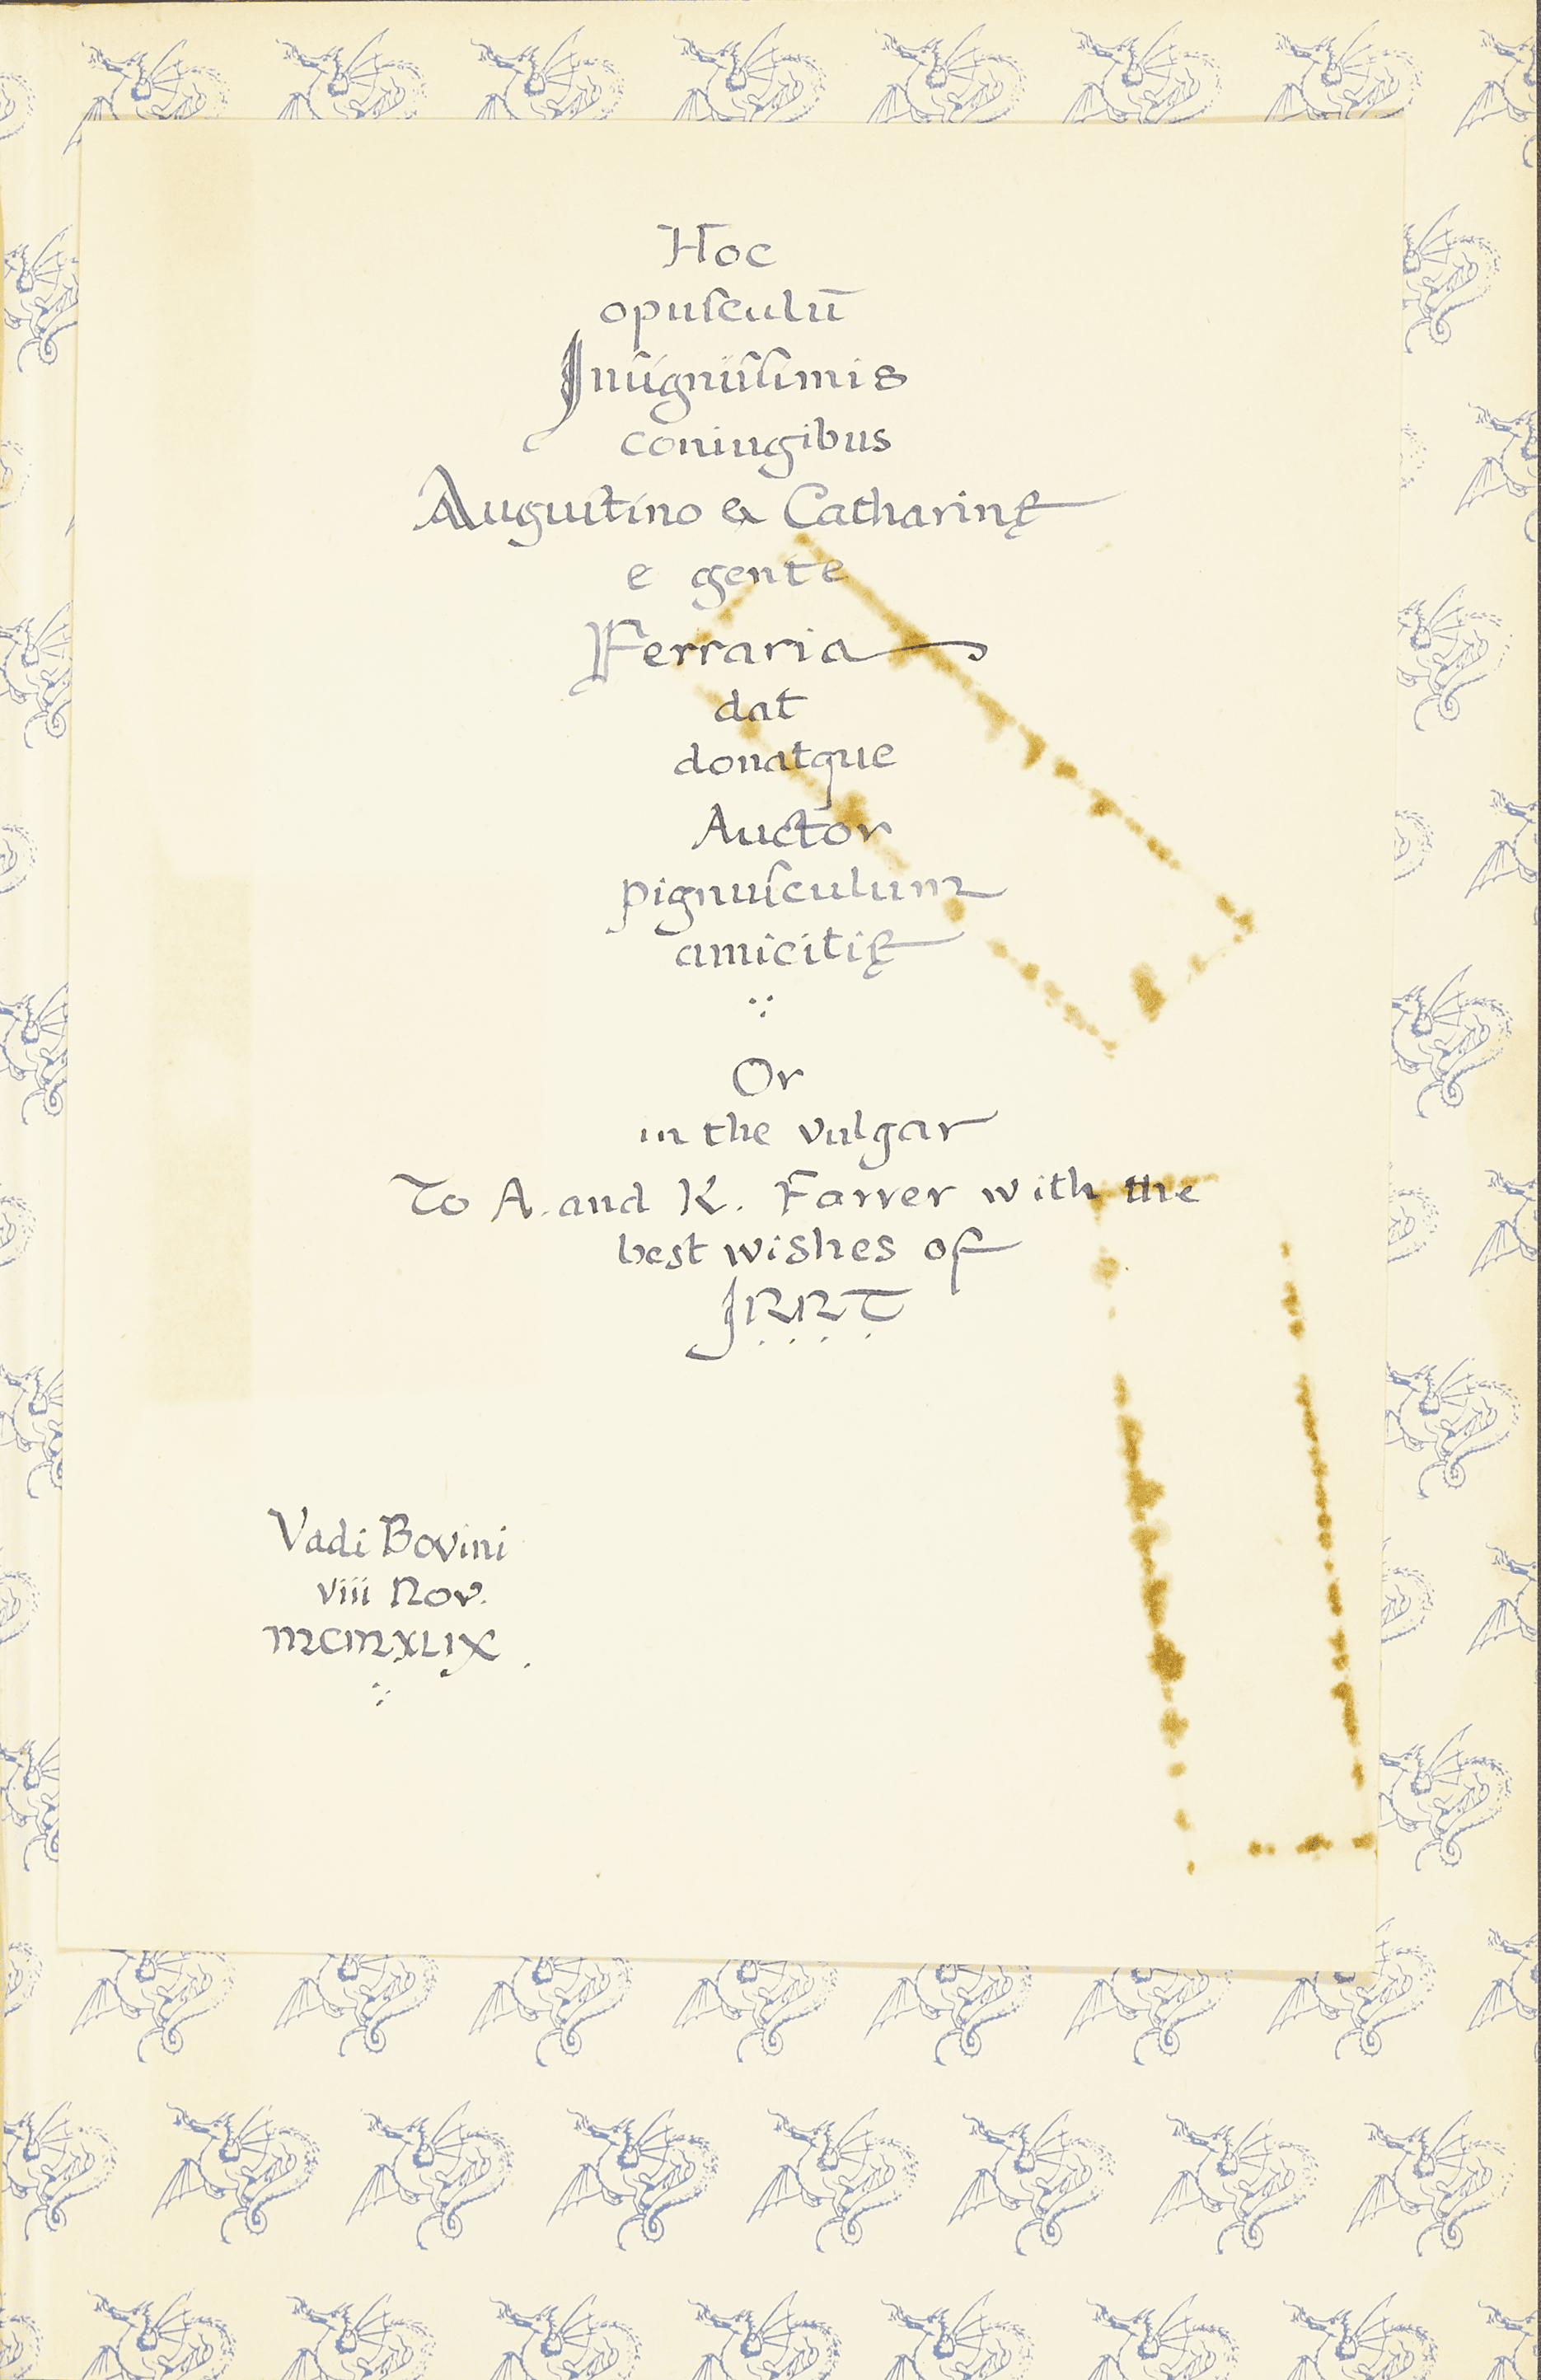 Hoc
opuſculū
Inſigniſſimis
coniugibus
Auguſtino & Catharinę
e gente
Ferraria
dat
donatque
Auctor
pignuſculum
amicitię
Or
in the vulgar
To A. and K. Farrer with the
best wishes of
J.R.R.T.
Vadi Bovini
viii Nov.
MCMXLIX.